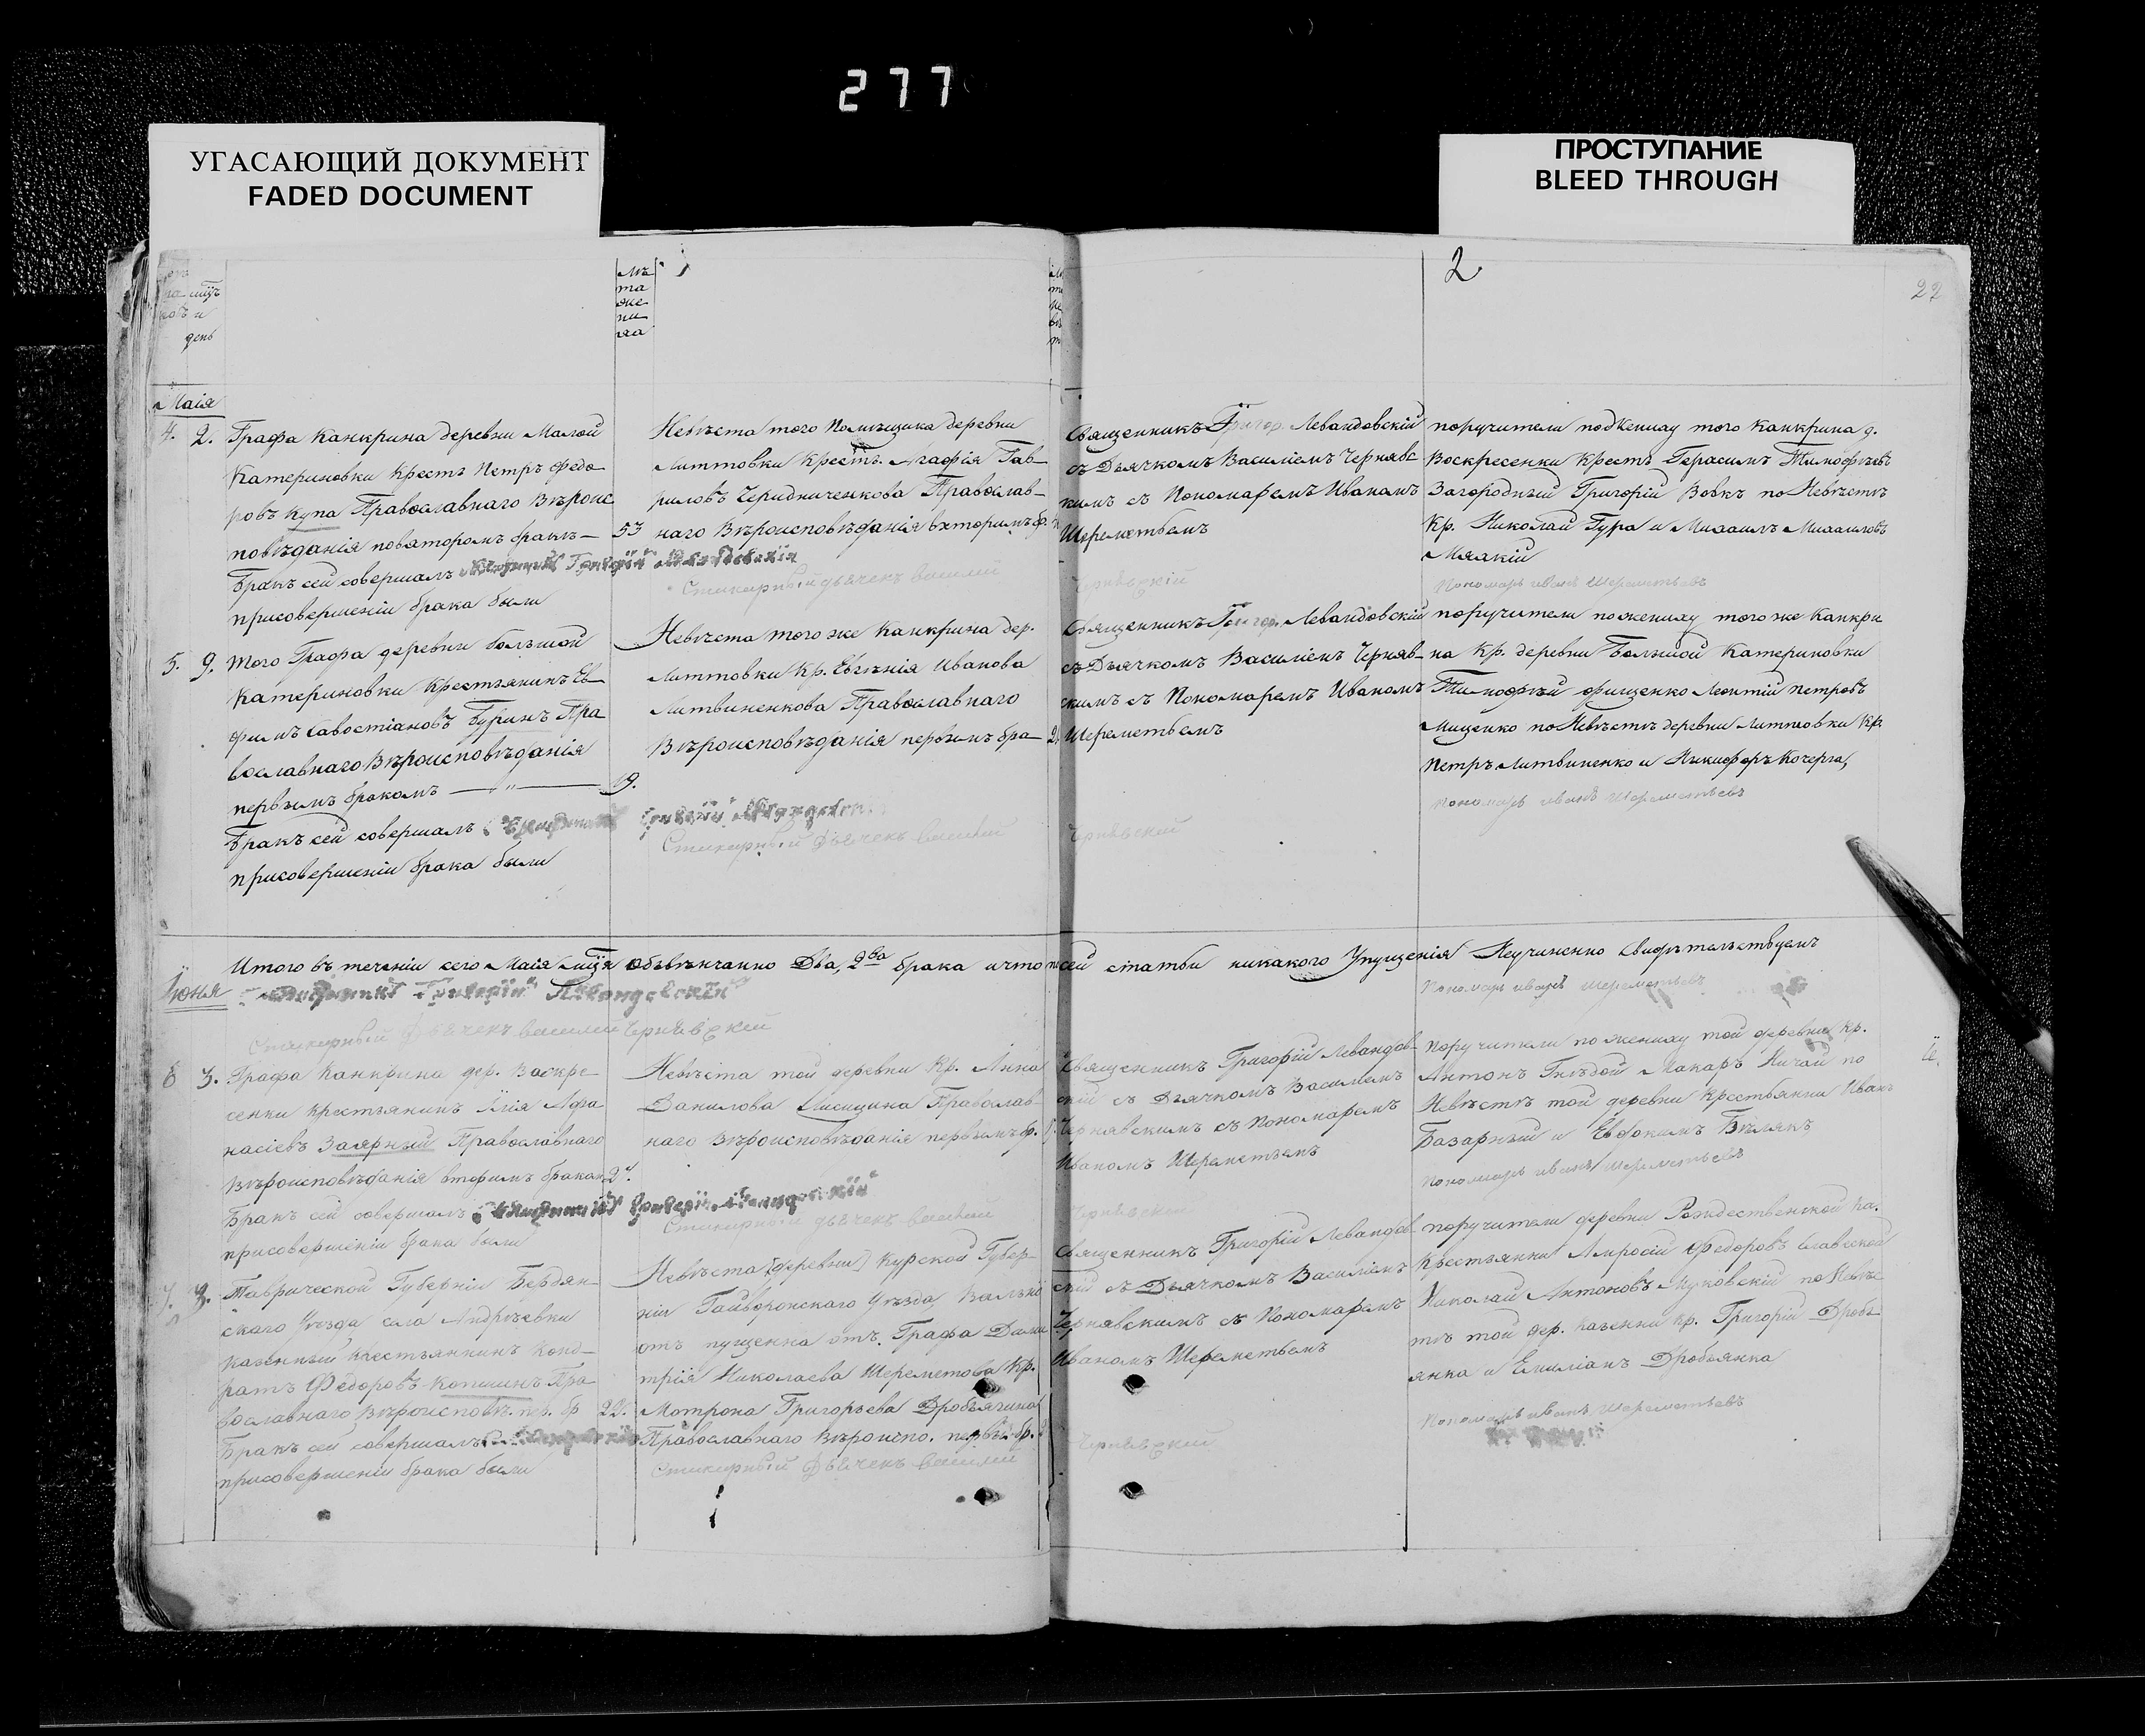 277
УГАСАЮЩИЙ ДОКУМЕНТ
FADED DOCUMENT
ПРОСТУПАНИЕ
BLEED THROUGH
мѣ
та
же
ни
ха
день
2
22
Маія
4. 2. Графа Канкрина деревни Малой
Катериновки Крестъ Петръ Федо
ровъ Купа Православнаго Вѣроис
повѣданія повторомъ бракѣ — 53
Бракъ сей совершалъ
присовершеніи брака были
Невѣста того Помѣщика деревни
Литтовки Крестъ. Агафія Гав
риловъ Чередниченкова Православ-
наго Вѣроисповѣданія вхторимъ бр.
Стихарный дьячекъ василій
Священникъ Григор. Левандовскій
съ Дьячкомъ Василіемъ Чернявс
кимъ съ Пономаремъ Иваномъ
Шереметьемъ
Чернявскій
поручители подкениху того Канкрина д.
Воскресенки Крестъ Герасимъ Тимофѣевъ
Загородный Григорій Вовкъ по Невѣстѣ
Кр. Николай Гура и Михаилъ Михаиловъ
Мялкій
Пономарь иванъ Шереметьевъ
5. 9. Того Графа деревни большой
Катериновки Крестьянинъ Ев
фимъ Савостіановъ Буринъ Пра
вославнаго Вѣроисповѣданія
первымъ бракомъ — „ — 19.
Бракъ сей совершалъ
присовершеніи брака были
Невѣста того же Канкрина дер.
Литтовки Кр. Евгѣнія Иванова
Литвиненкова Православнаго
Вѣроисповѣданія первымъ бра
Григорій Левандовскій
Стихарный Дьячекъ василій
Священникъ Григор. Левандовскій
съ Дьячкомъ Василіемъ Черняв
скимъ съ Пономаремъ Иваномъ
Шереметьемъ
Чернявскій
поручители пожениху того же Канкри
на Кр. деревни Большой Катериновки
Тимофѣй Фищенко Леонтій Петровъ
Мищенко по Невѣстѣ деревни Литтовки Кр.
Петръ Литвиненко и Никифоръ Кочерга,
Пономарь иванъ Шереметьевъ
Итого въ теченіи сего Маія мця обвѣнчанно Два, 2ва брака ичто посей статьи никакого Упущенія Неучиненно Свидѣтельствуемъ
Июня
Григорій Левандовскій
Пономарь иванъ Шереметьевъ
Стихарный Дьячекъ василій Чернявскій
6 3. Графа Канкрина дер. Воскре
сенки Крестьянинъ Илія Афа
насіевъ Заярный Православнаго
Вѣроисповѣданія вторымъ бракам
Бракъ сей совершалъ
присовершеніи брака были
Невѣста той деревни Кр. Анна
Данилова Лисицина Православ-
наго Вѣроисповѣданія первымъ бр.
Стихарный дьячекъ василій
Священникъ Григорій Левандов
скій съ Дьячкомъ Василіемъ
Чернявскимъ съ Пономаремъ
Иваномъ Шереметьемъ
Чернявскій
поручители пожениху той деревни Кр.
Антонъ Гнѣдой Макаръ Ничай по
Невѣстѣ той деревни Крестьянинъ Иванъ
Базарный и Евдокимъ Бѣлякъ
Пономарь иванъ Шереметьевъ
7. 3. Таврической Губерніи Бердян-
скаго Уѣзда села Андрѣевки
Казенный Крестьянинъ Конд-
ратъ Федоровъ Копшинъ Пра
вославнаго Вѣроисповѣ. пер. бр 22.
Бракъ сей совершалъ
присовершеніи брака были
Невѣста [деревни] Курской Губер-
ніи Гайворонскаго Уѣзда, Вольно
отъ пущенна отъ Графа Дми
трія Николаева Шереметова Кр.
Мотрона Григорьева Дробязгина
Православнаго Вѣроиспо. первы. бр.
Стихарный Дьячекъ василій
Священникъ Григорій Левандов
скій съ Дьячкомъ Василіемъ
Чернявскимъ съ Пономаремъ
Иваномъ Шереметьемъ
Чернявскій
поручители деревни Рождественской Ка.
Крестьянинъ Амросій Федоровъ Славской
Николай Антоновъ Муковскій по Невѣс
тѣ той дер. Казенни Кр. Григорій Дробя
янка и Емиліанъ Дробьянка
Пономарь иванъ Шереметьевъ